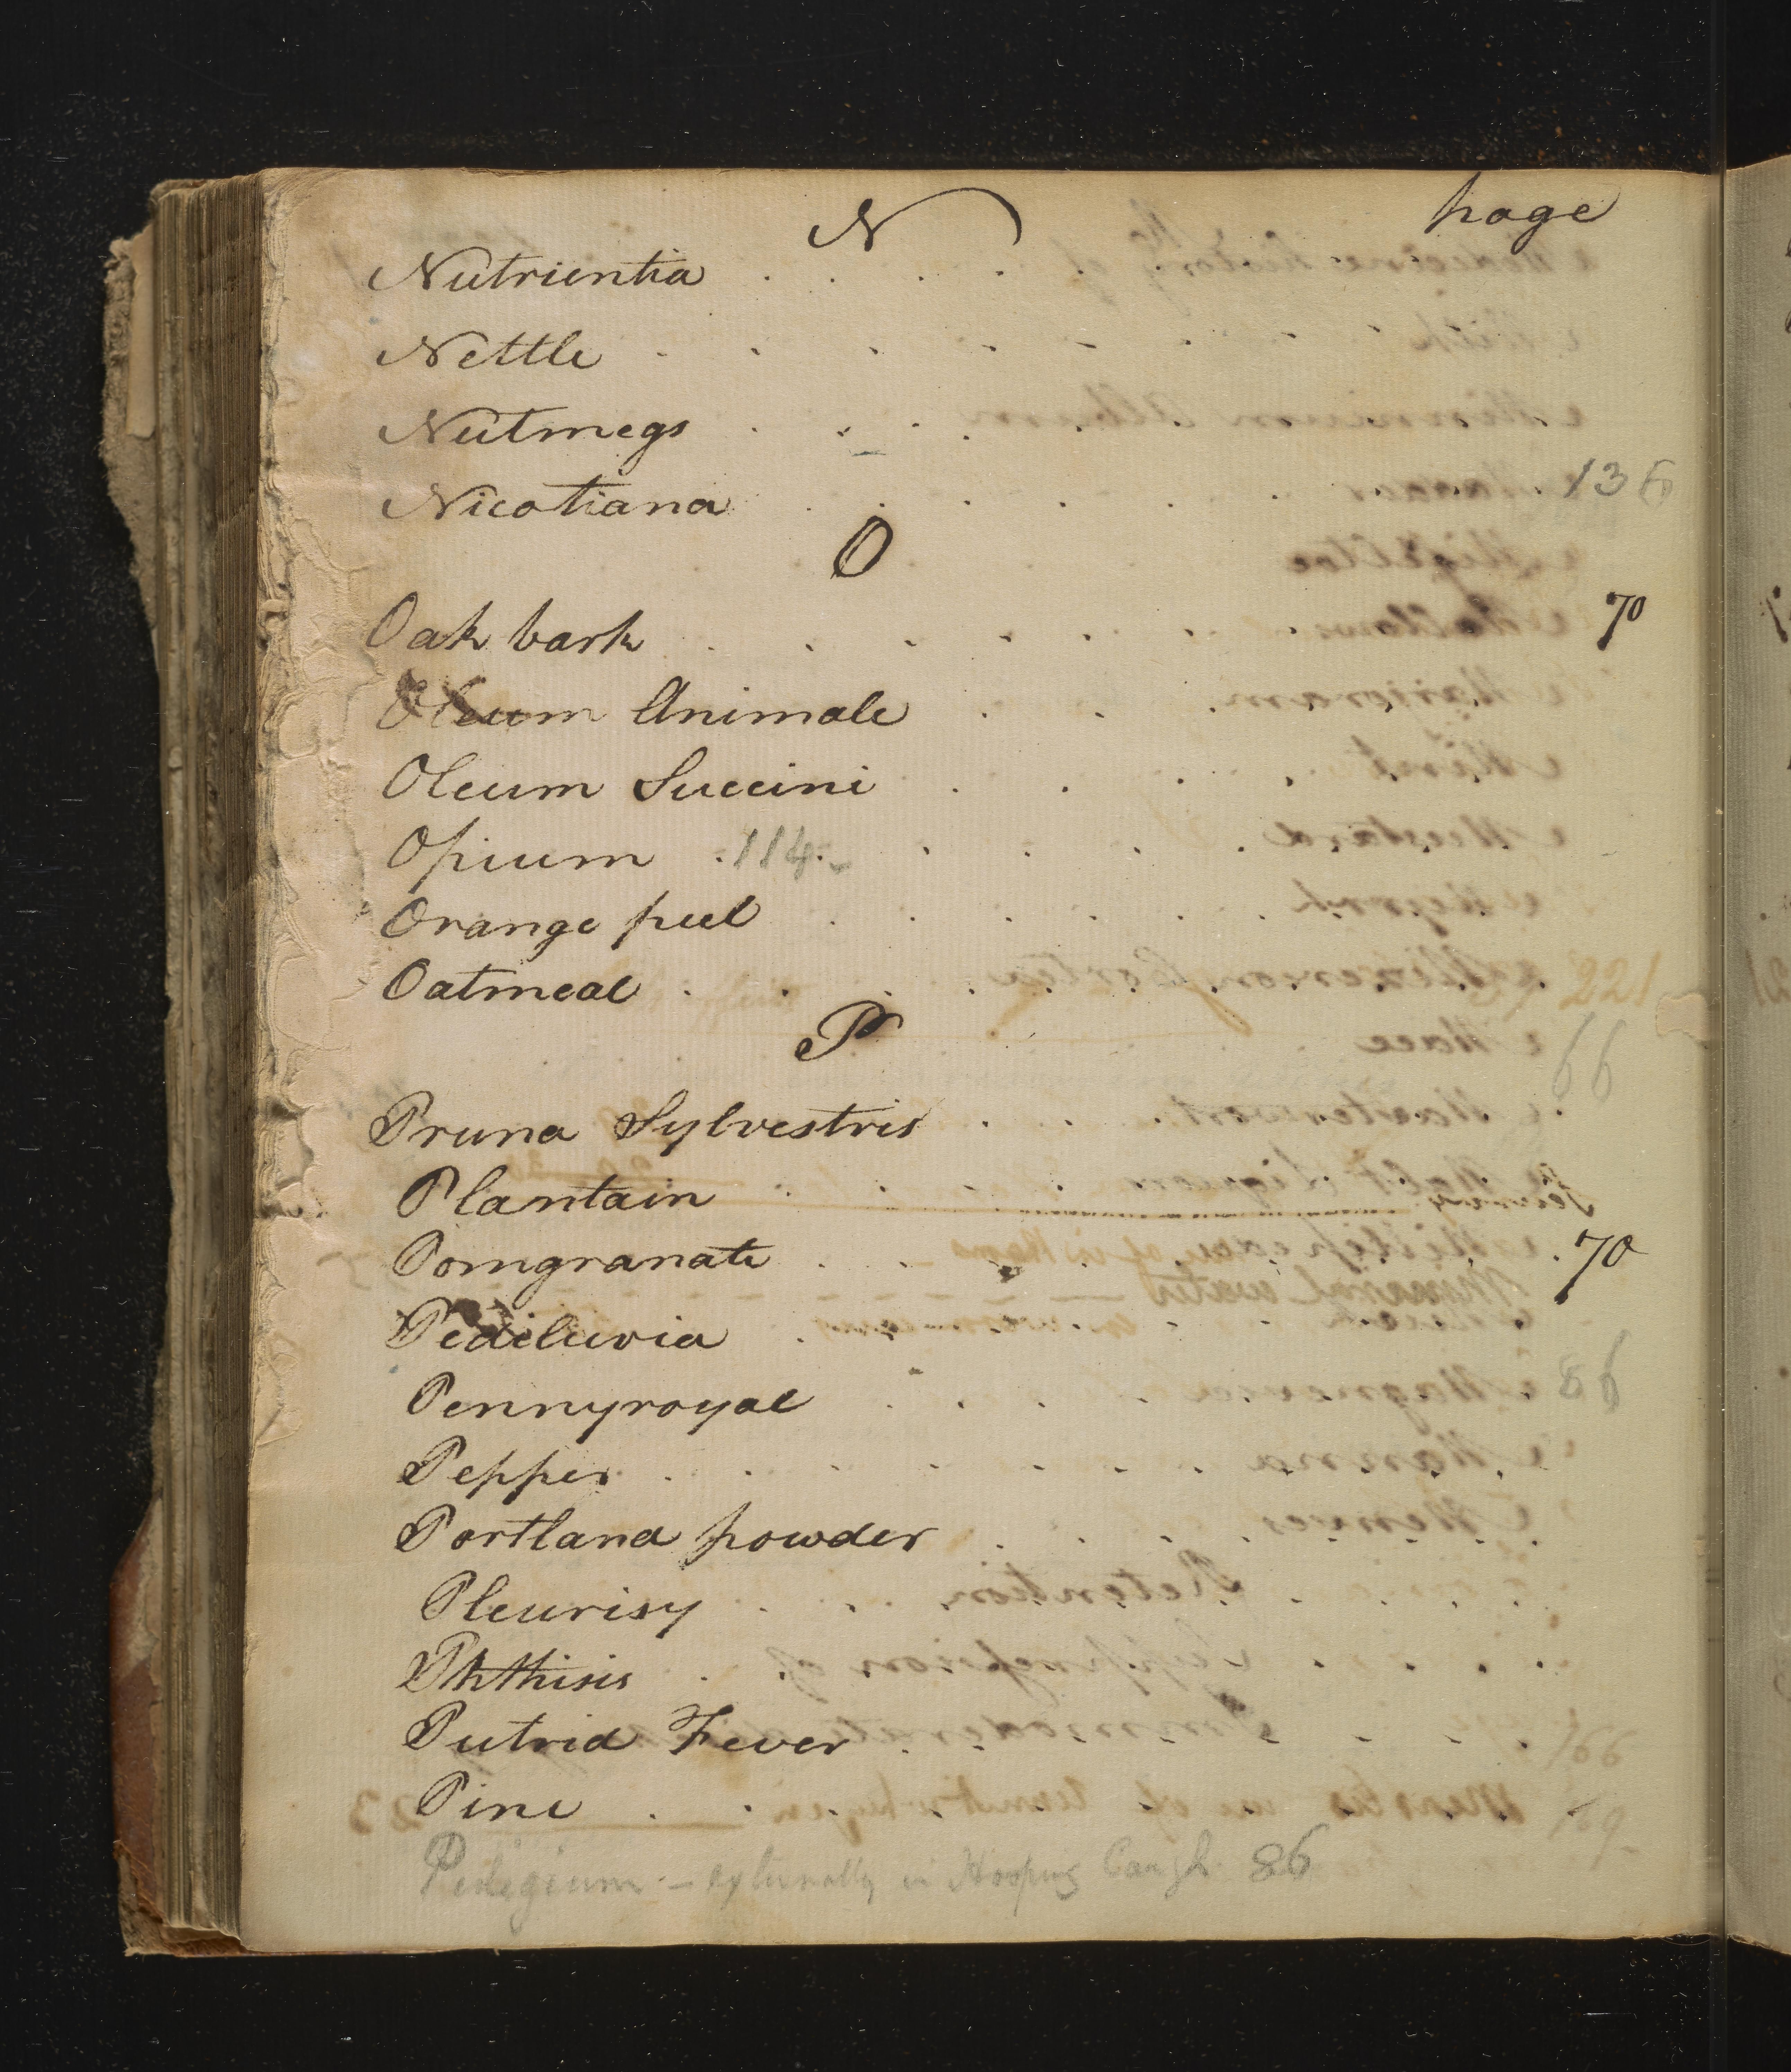 N page
Nutrientia . . . . .
Nettle . . . . . . .
Nutmegs . . . . .
Nicotiana . . . . . 136
O
Oak bark . . . . . . 70
Oleum Animale . . .
Oleum Succini . . . .
Opium . 114 . . . . .
Orange peel . . . . .
Oatmeal . . . .
P
Pruna Sylvestris . . .
Plantain . . . .
Pomgranate . . . . 70
Pediluvia . . . .
Pennyroyal . . . .
Pepper . . . . . . .
Portland powder . . . .
Pleurisy . . .
Phthisis .
Putrid Fever . . .
Pine . .
Pulegium — externally in Hooping Cough 86